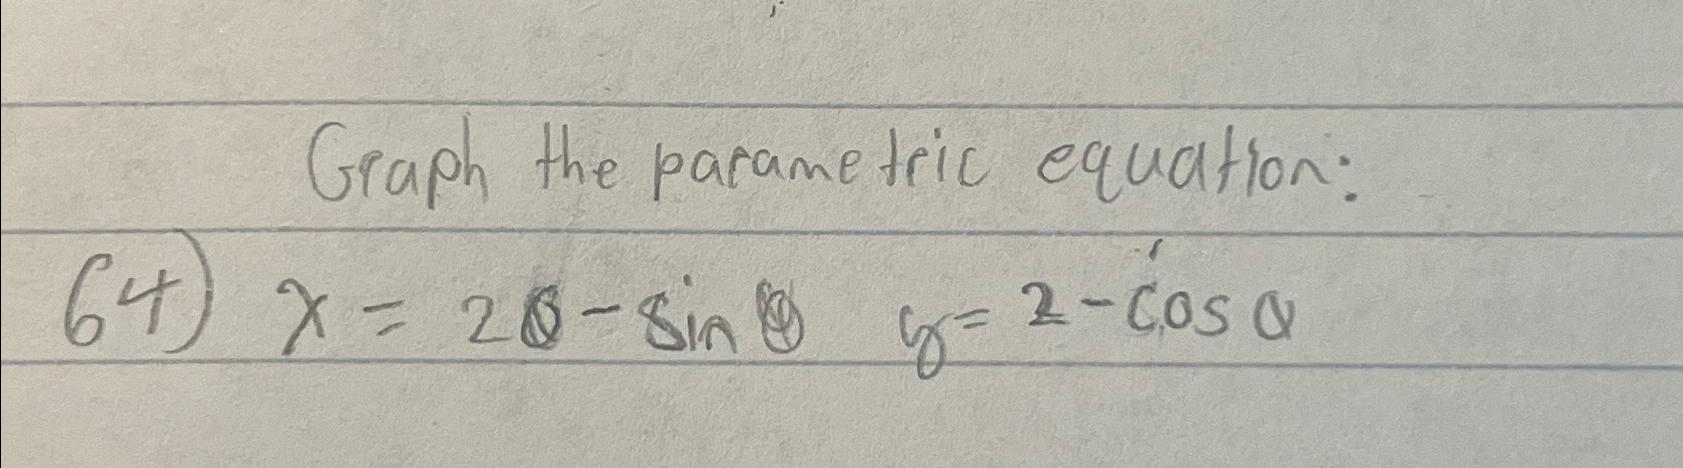 Graph the parametric equation:
64) x = 2θ - sin θ y = 2 - cos θ